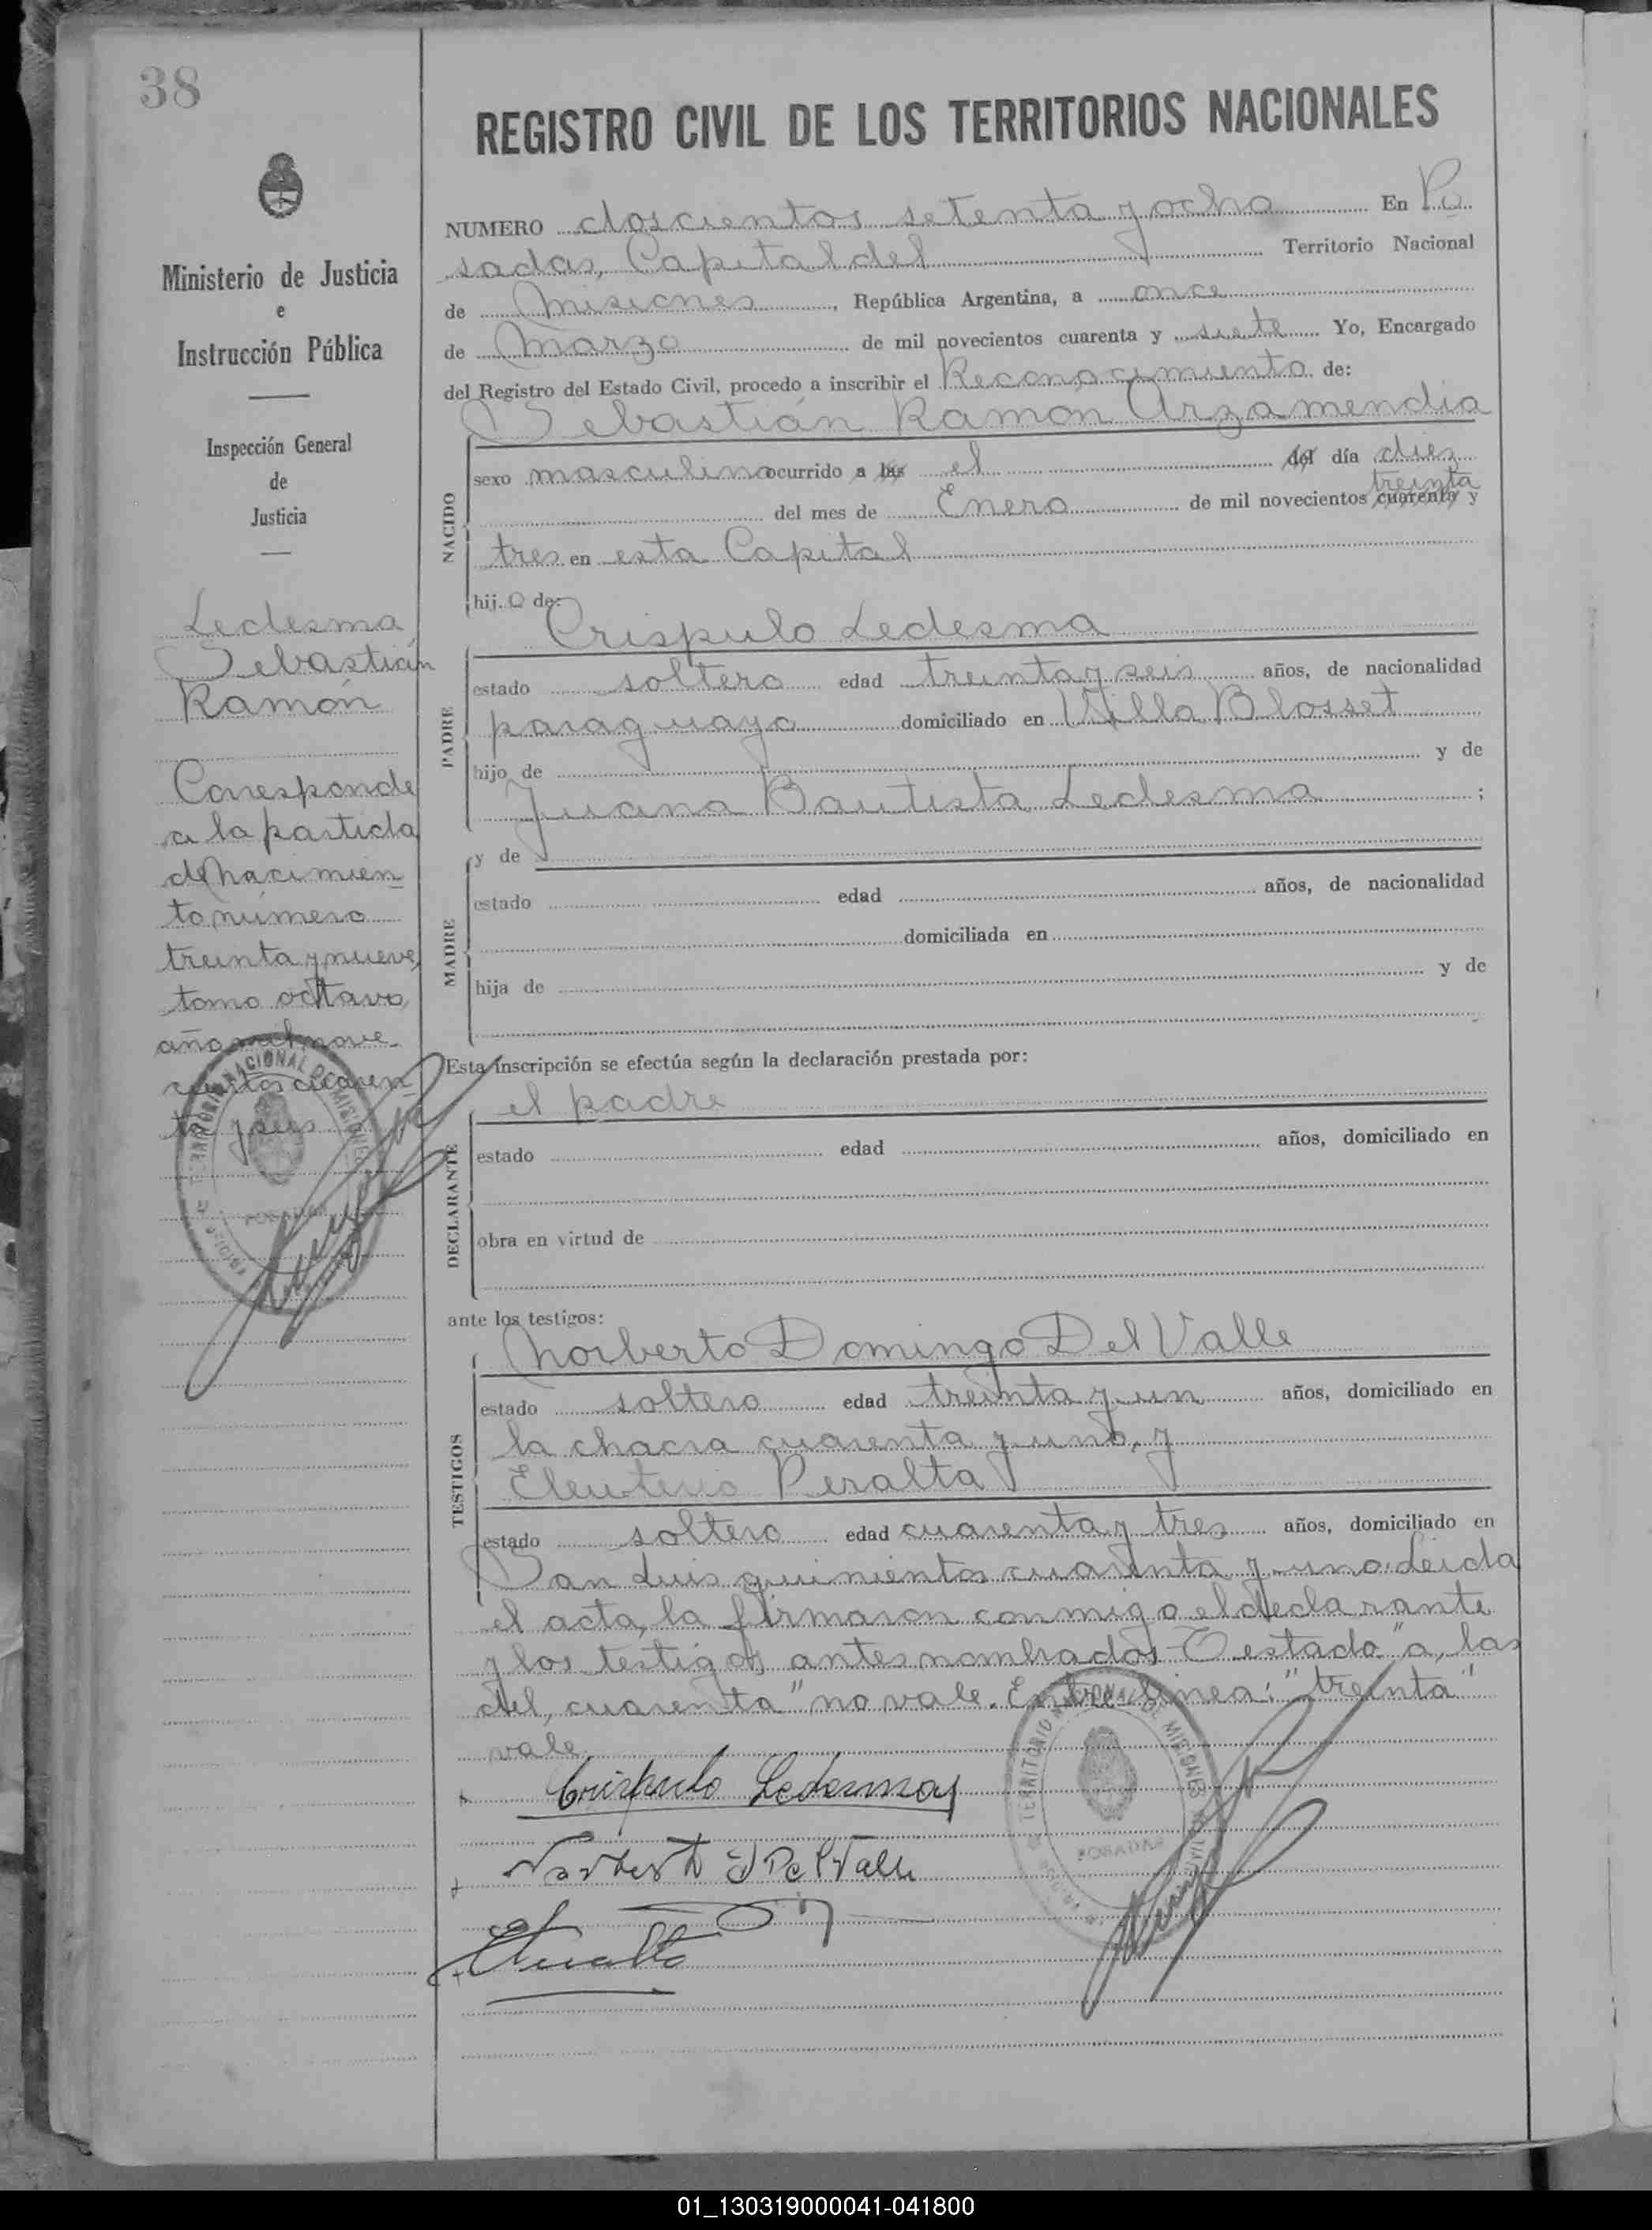 38
Ministerio de Justicia
e
Instrucción Pública
Inspección General
de
Justicia
Ledesma
Sebastián
Ramón
Corresponde
a la partida
de nacimien
to número
treinta y nueve,
tomo octavo,
año mil nove
cientos cuaren
ta y seis
REGISTRO CIVIL DE LOS TERRITORIOS NACIONALES
NUMERO doscientos setenta y ocho En Po
sadas, Capital del Territorio Nacional
de Misiones, República Argentina, a once
de Marzo de mil novecientos cuarenta y siete Yo, Encargado
del Registro del Estado Civil, procedo a inscribir el Reconocimiento de:
Sebastián Ramón Arzamendia
NACIDO
sexo masculino ocurrido a las el del día diez
treinta
del mes de Enero de mil novecientos cuarenta y
tres en esta Capital
hij.o de:
Crispulo Ledesma
PADRE
estado soltero edad treinta y seis años, de nacionalidad
paraguayo domiciliado en Villa Blosset
hijo de y de
Juana Bautista Ledesma ;
y de
MADRE
estado edad años, de nacionalidad
domiciliada en
hija de y de
Esta inscripción se efectúa según la declaración prestada por:
el padre
DECLARANTE
estado edad años, domiciliado en
obra en virtud de
ante los testigos:
Norberto Domingo Del Valle
TESTIGOS
estado soltero edad treinta y un años, domiciliado en
la chacra cuarenta y uno, y
Eleuterio Peralta
estado soltero edad cuarenta y tres años, domiciliado en
San Luis quinientos cuarenta y uno. Leida
el acta, la firmaron conmigo el declarante
y los testigos antes nombrados. Testado "a, las
del, cuarenta" no vale. Entre linea: "treinta"
vale.
Crispulo Ledesma
Norberto D Del Valle
TERRITORIO NACIONAL DE MISIONES
POSADAS
01_130319000041-041800